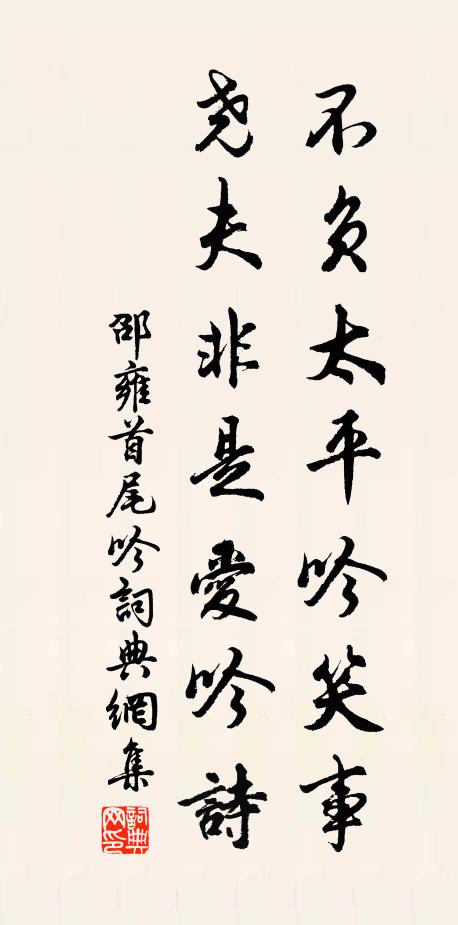 不負太平吟笑事
堯夫非是愛吟詩
邵雍首尾吟詞典網集
詞典網印